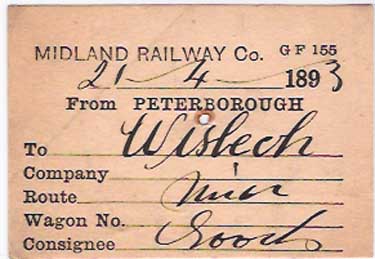 MIDLAND RAILWAY Co. G F 155
21-4-1893
From PETERBOROUGH
To Wisbech
Company
Route
Wagon No.
Consignee Goods